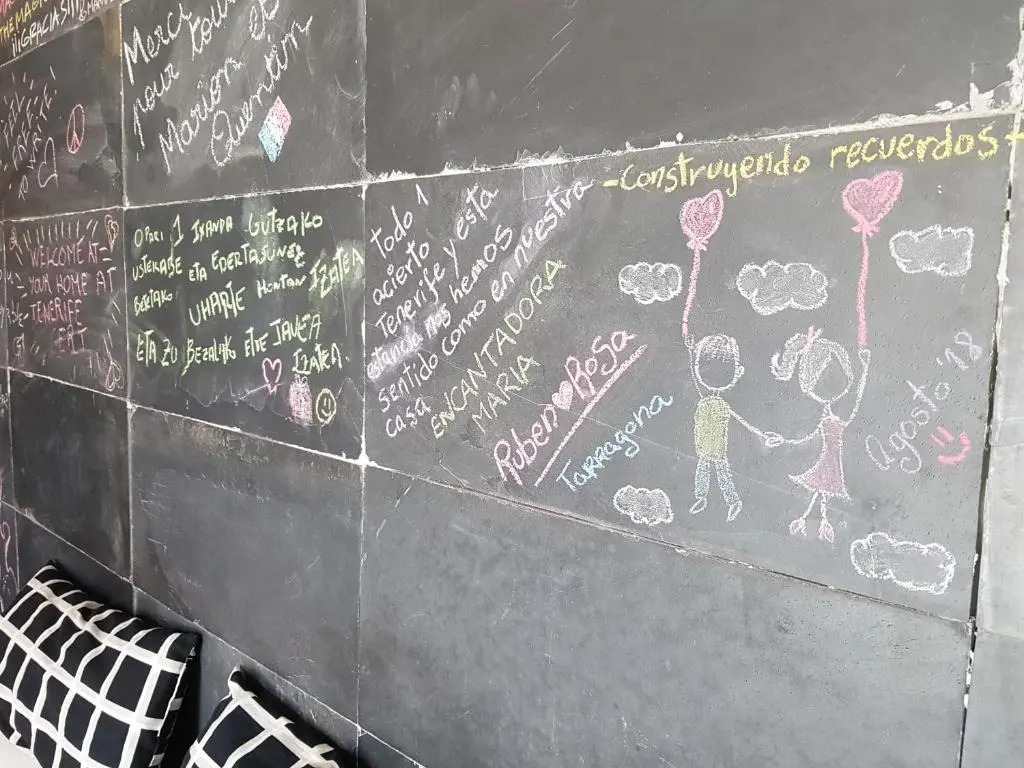 THE MAGIC
¡¡¡GRACIAS!!!
Merci
pour tout
Marion et
Quentin
WELCOME AT
YOUR HOME AT
TENERIFE
OPARI 1 IXANDA GUTZAKO
USTEKABE ETA EDERTASUNEZ
BETETAKO UHARTE HONTAN IZATEA
ETA ZU BEZALAKO ETXE JABEA
IZATEA
todo 1
acierto
Tenerife y esta
hemos
sentido como en nuestra
casa
ENCANTADORA
MARIA
Ruben Rosa
Tarragona
-Construyendo recuerdos-
Agosto '18